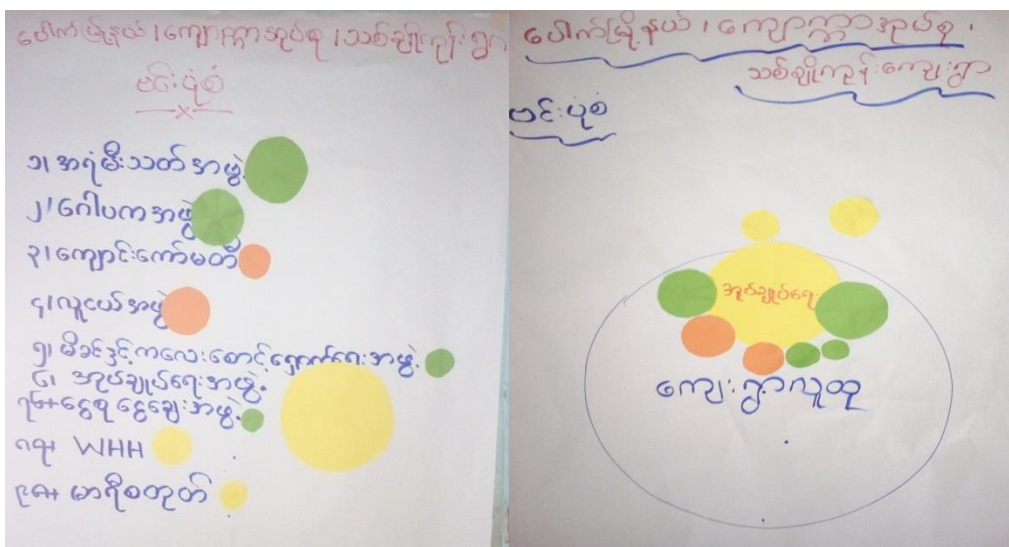 ပေါက်မြို့နယ်၊ ကျောက္ကာအုပ်စု၊ သစ်ချိုကုန်းရွာ
ဗင်းပုံစံ
၁၊ အရံမီးသတ်အဖွဲ့
၂၊ ဂေါပကအဖွဲ့
၃၊ ကျောင်းကော်မတီ
၄၊ လူငယ်အဖွဲ့
၅၊ မိခင်နှင့်ကလေးစောင့်ရှောက်ရေးအဖွဲ့
၆၊ အုပ်ချုပ်ရေးအဖွဲ့
၇၊ ငွေစုငွေချေးအဖွဲ့
၈၊ WHH
၉၊ မာရီစတုတ်
ပေါက်မြို့နယ်၊ ကျောက္ကာအုပ်စု၊
သစ်ချိုကုန်းကျေးရွာ
ဗင်းပုံစံ
အုပ်ချုပ်ရေး
ကျေးရွာလူထု